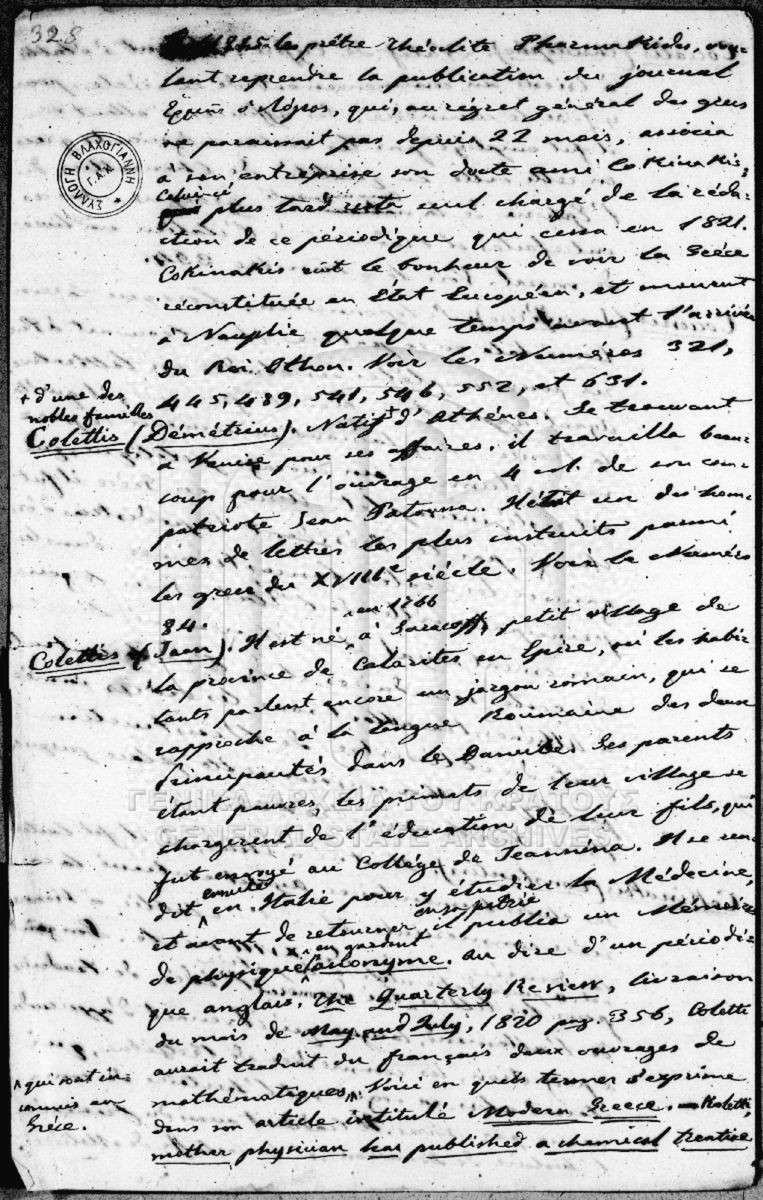 328
1815 le prêtre Théoclite Pharmakides, vou-
lant reprendre la publication du journal
Ἑρμῆς ὁ Λόγιος, qui, au regret général des grecs
ne paraissait pas depuis 22 mois, associa
à son entréprise son docte ami CoKinaKis,
Celui-ci
plus tard resta seul chargé de la réda-
ction de ce périodique qui cessa en 1821.
CoKinaKis eût le bonheur de voir la Grèce
réconstituée en État Européen, et mourut
à Nauplie quelque temps avant l'arrivée
du Roi Othon. Voir les Numéros 321,
445, 439, 541, 546, 552, et 631.
+ d'une des
nobles familles
Colettis (Démétrius). Natif + d'Athénes. Se trouvant
à Venise pour ses affaires, il travailla beau-
coup pour l'ouvrage en 4 vol. de son com-
patriote Jean Patousa. Il était un des hom-
mes de lettres les plus instruits parmi
les grecs du XVIIIe siécle. Voir le Numéro
84.
en 1766
Colettis (Jean). Il est né, à petit village de
la province de Calarites en Epire, où les habi-
tants parlent encore un jargon romain, qui se
rapproche à la langue Roumaine des deux
Principautés dans le Danube. Ses parents
étant pauvres, les primats de leur village se
chargerent de l'éducation de leur fils, qui
fut envoyé au Collége de Jeannina. Il se ren-
dit ensuite en Italie pour y étudier la Médecine,
et avant de retourner en sa patrie il publia un Mémoire
de physique en gardant l'anonyme. Au dire d'un périodi-
que anglais, The Quarterly Review, livraison
du mois de May and July, 1820 pag. 356, Coletti
aurait traduit du français deux ouvrages de
mathématiques ^. Voici en quels termes s'exprime
^ qui sont in-
connuis en
Grèce.
dans son article intitulé Modern Greece. — Koletti,
another physician has published a chemical treatise
ΣΥΛΛΟΓΗ ΒΛΑΧΟΓΙΑΝΝΗ
Γ.Α.Κ
ΓΕΝΙΚΑ ΑΡΧΕΙΑ ΤΟΥ ΚΡΑΤΟΥΣ
GENERAL STATE ARCHIVES